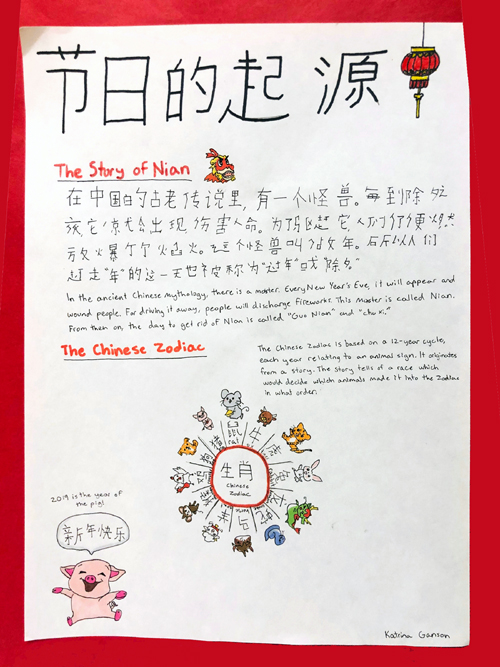 节日的起源
The Story of Nian
在中国的古老传说里,有一个怪兽。每到除夕
夜它就会出现伤害人命。为了驱赶它人们便燃
放爆竹烟火。这个怪兽叫做年。所以人们
赶走"年"的这一天也被称为"过年"或"除夕"
In the ancient Chinese mythology, there is a master. Every New Year's Eve, it will appear and
wound people. For driving it away, people will discharge fireworks. This master is called Nian.
From then on, the day to get rid of Nian is called "Guo Nian" and "chu xi."
The Chinese Zodiac
The Chinese Zodiac is based on a 12-year cycle,
each year relating to an animal sign. It originates
from a story. The story tells of a race which
would decide which animals made it into the Zodiac
in what order.
鼠
rat
牛
猪
生肖
Chinese
Zodiac
2019 is the year of
the pig!
新年快乐
Katrina Ganson